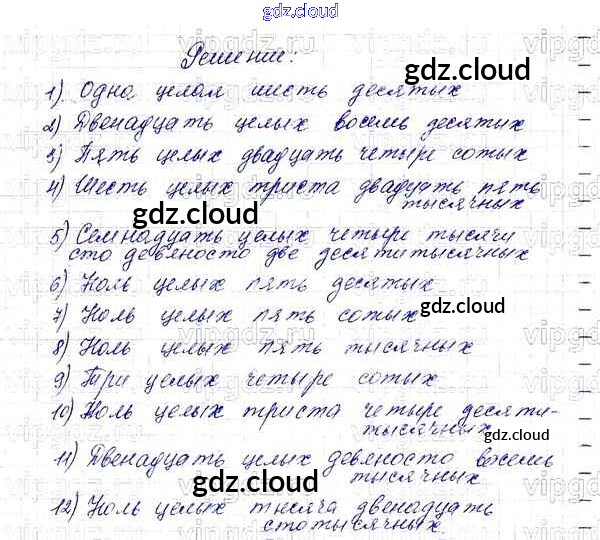 gdz.cloud
Решение:
gdz.cloud
1) Одна целая шесть десятых
2) Двенадцать целых восемь десятых
3) Пять целых двадцать четыре сотых
4) Шесть целых триста двадцать пять
тысячных
gdz.cloud
5) Семнадцать целых четыре тысячи
сто девяносто две десятитысячных
6) Ноль целых пять десятых
7) Ноль целых пять сотых
gdz.cloud
8) Ноль целых пять тысячных
9) Три целых четыре сотых
10) Ноль целых триста четыре десяти-
тысячных
gdz.cloud
11) Двенадцать целых девяносто восемь
тысячных
gdz.cloud
12) Ноль целых тысяча двенадцать
стотысячных